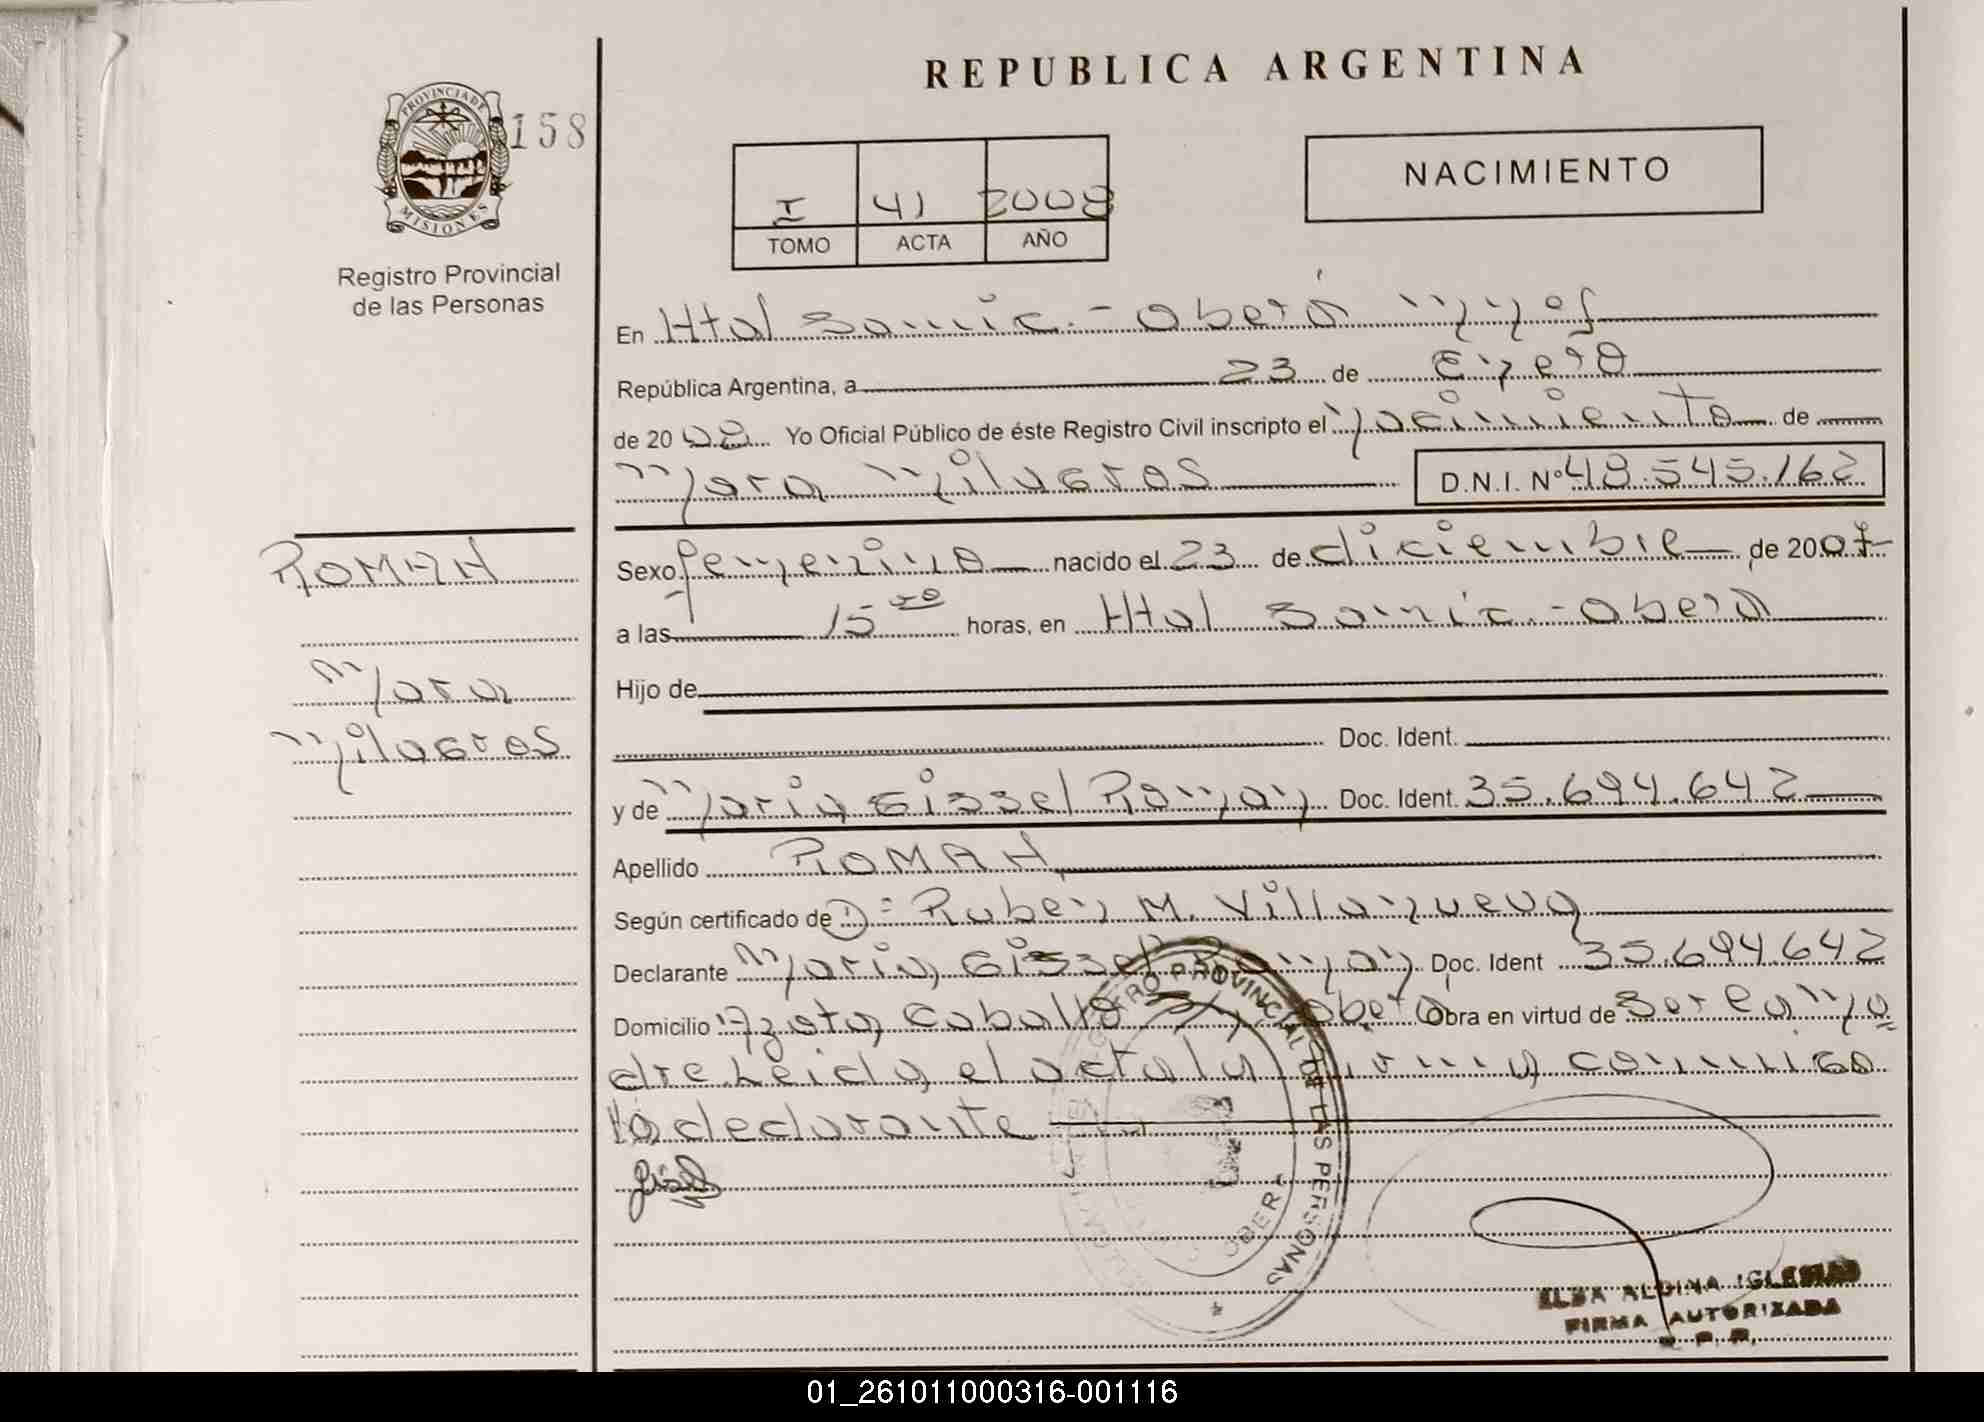 REPUBLICA ARGENTINA
PROVINCIA DE
MISIONES
158
Registro Provincial
de las Personas
I 41 2008
TOMO ACTA AÑO
NACIMIENTO
En Htal Samic - Oberá Mnes
República Argentina, a 23 de Enero
de 2008 Yo Oficial Público de éste Registro Civil inscripto el nacimiento de
Mara Milagros D.N.I. Nº 48.545.162
ROMAN
Mara
Milagros
Sexo femenino nacido el 23 de diciembre de 2007
a las 15 horas, en Htal Samic - Oberá
Hijo de
Doc. Ident.
y de Maria Gissel Roman Doc. Ident. 35.694.642
Apellido ROMAN
Según certificado de D: Ruben M. Villanueva
Declarante Maria Gissel Roman Doc. Ident 35.694.642
Domicilio Azota Caballo Oberá Obra en virtud de Ser la ma
dre. Leida el acta la firma conmigo
la declarante
REGISTRO PROVINCIAL DE LAS PERSONAS
OBERA
ELBA ALDINA IGLESIAS
FIRMA AUTORIZADA
R. P. P.
01_261011000316-001116